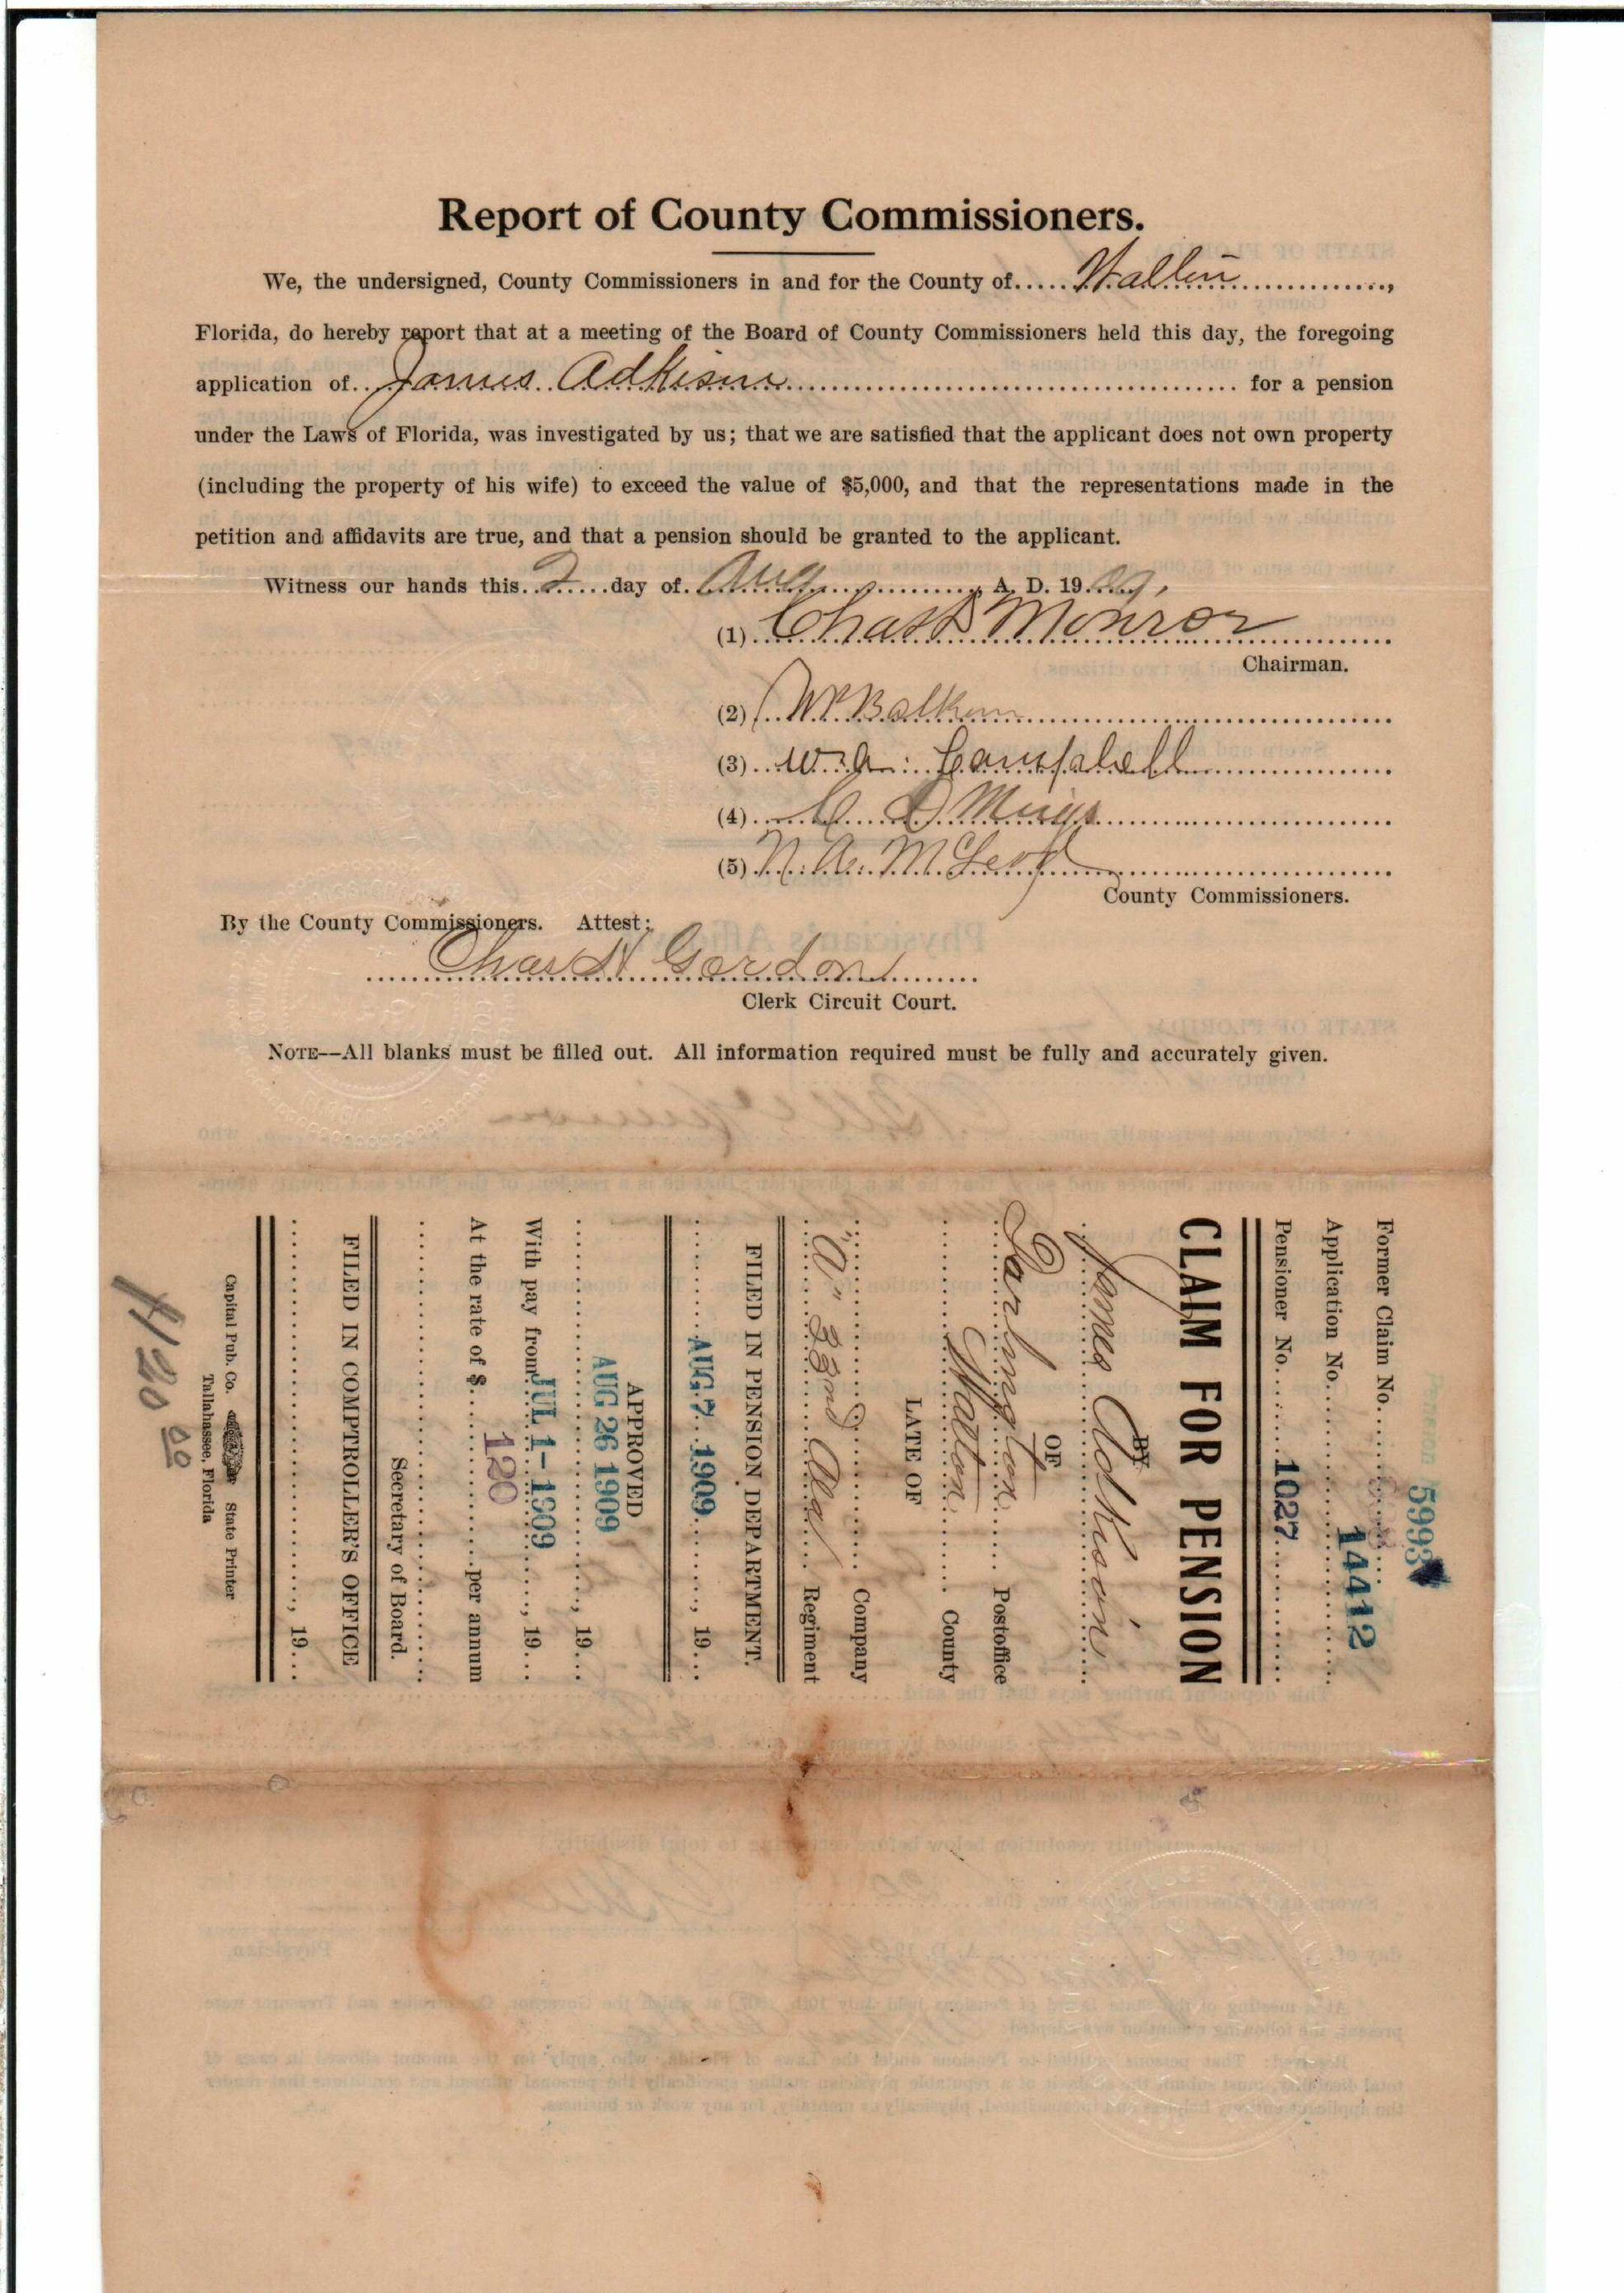 Report of County Commissioners.
We, the undersigned, County Commissioners in and for the County of.....Walton....................,
Florida, do hereby report that at a meeting of the Board of County Commissioners held this day, the foregoing
application of..James Adkison........................................ for a pension
under the Laws of Florida, was investigated by us; that we are satisfied that the applicant does not own property
(including the property of his wife) to exceed the value of $5,000, and that the representations made in the
petition and affidavits are true, and that a pension should be granted to the applicant.
Witness our hands this..2.....day of..Aug.................., A. D. 19.09.
(1)..Chas Monroe
Chairman.
(2)..
(3)..W. A. Campbell
(4)..C D Meigs
(5)..N. A. McLeod
County Commissioners.
By the County Commissioners. Attest:
Chas H Gordon
Clerk Circuit Court.
NOTE--All blanks must be filled out. All information required must be fully and accurately given.
5993
Former Claim No.
Application No. 14412
Pensioner No. 1027
CLAIM FOR PENSION
BY
James Adkison
OF
Darlington Postoffice
Walton County
LATE OF
Company
"A" 33rd Ala Regiment
FILED IN PENSION DEPARTMENT.
AUG 7 1909, 19...
APPROVED
AUG 26 1909, 19...
With pay from JUL 1-1909, 19...
At the rate of $ 120 per annum
Secretary of Board.
FILED IN COMPTROLLER'S OFFICE
, 19...
Capital Pub. Co. State Printer
Tallahassee, Florida